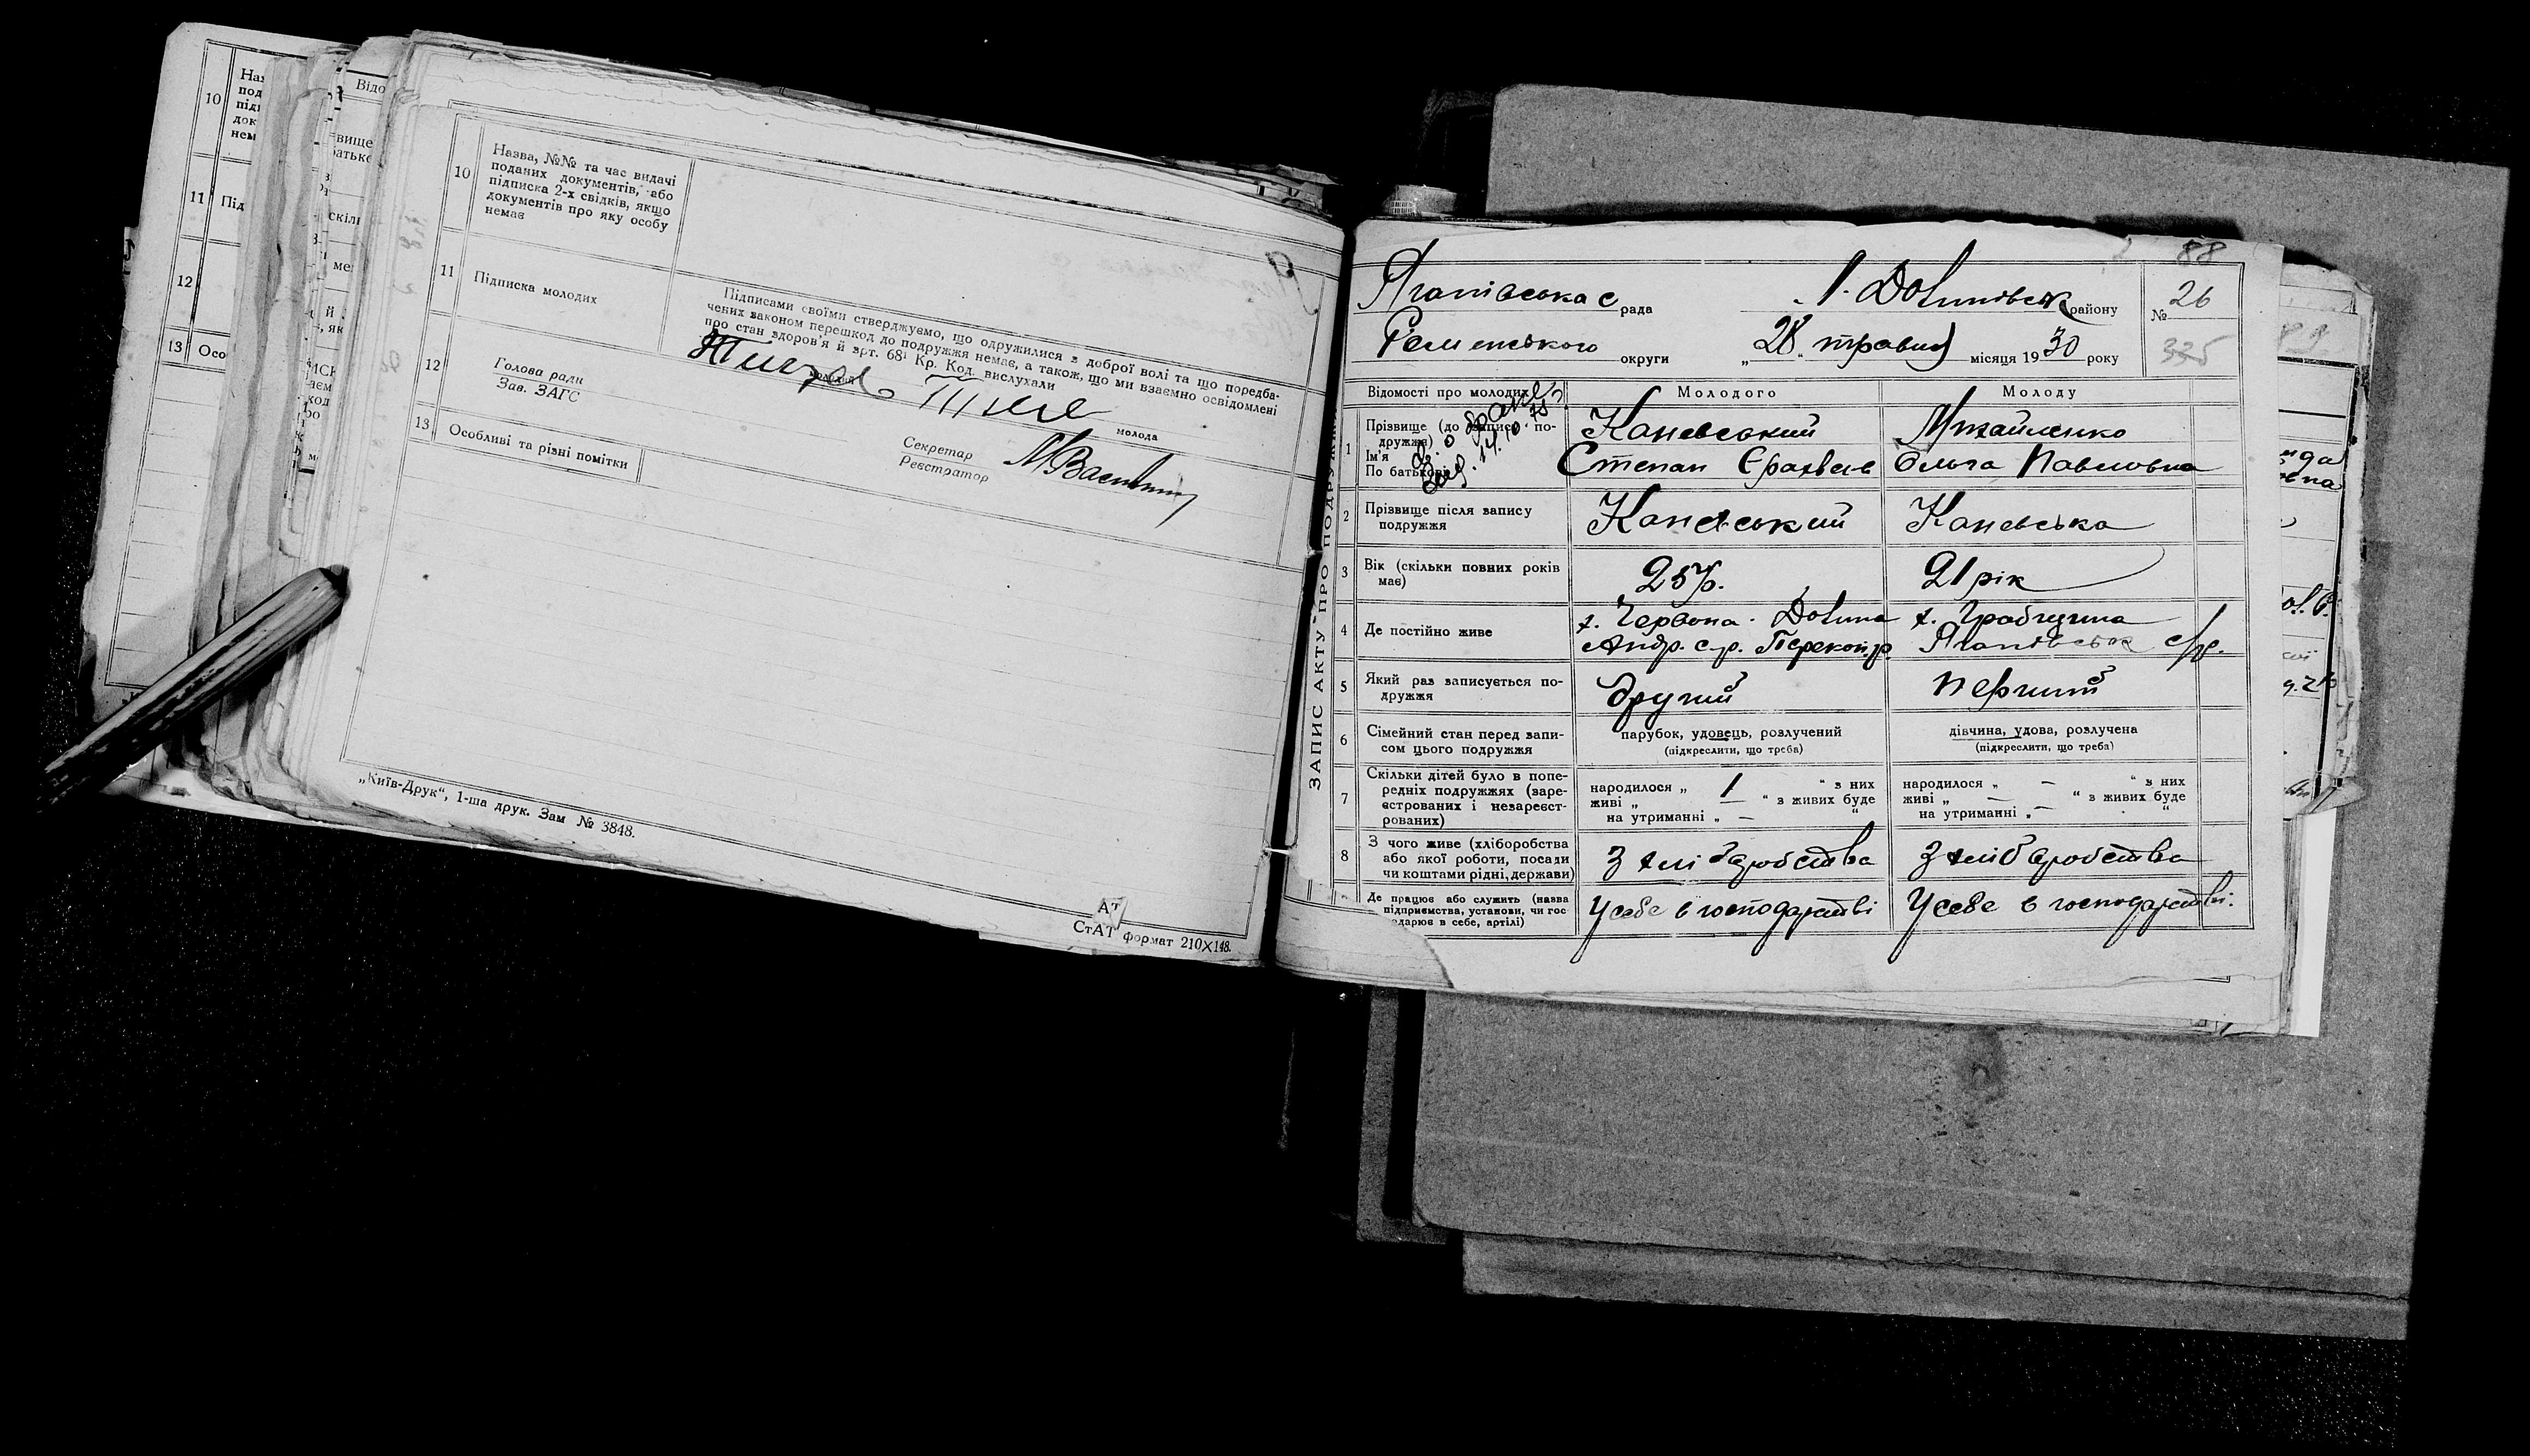 10
Наз
под
підп
док
нем
11
Під
12
13
Осо
Відо
10
Назва, №№ та час видачі
поданих документів, або
підписка 2-х свідків, якщо
документів про яку особу
немає
11
Підписка молодих
Підписами своїми стверджуємо, що одружилися з доброї волі та що поредба-
чених законом перешкод до подружжя немає, а також, що ми взаємно освідомлені
про стан здоров'я й арт. 68¹ Кр. Код. вислухали
молодий
молода
12
Голова ради
Зав. ЗАГС
Секретар
Реєстратор
13
Особливі та різні помітки
„Київ-Друк“, 1-ша друк. Зам № 3848.
СтАТ формат 210Х148.
88
рада
району
№ 26
Роменського округи
„28“ травня місяця 1930 року
325
ЗАПИС АКТУ ПРО ПОДРУЖЖЯ
Відомості про молодих
Молодого
Молоду
1
Прізвище (до запису по-
дружжя)
Ім'я
По батькові
Каневський
Степан
Михайленко
Ольга Павловна
2
Прізвище після запису
подружжя
Каневський
Каневська
3
Вік (скільки повних років
має)
25 р.
21 рік
4
Де постійно живе
х. Червона Долина
Андр. с.р. Перекоп.р.
х.
с/р.
5
Який раз записується по-
дружжя
другий
перший
6
Сімейний стан перед запи-
сом цього подружжя
парубок, удовець, розлучений
(підкреслити, що треба)
дівчина, удова, розлучена
(підкреслити, що треба)
7
Скільки дітей було в попе-
редніх подружжях (заре-
єстрованих і незареєст-
рованих)
народилося „ 1 “ з них
живі „ — “ з живих буде
на утриманні „ — “
народилося „ — “ з них
живі „ — “ з живих буде
на утриманні „ — “
8
З чого живе (хліборобства
або якої роботи, посади
чи коштами рідні, держави)
З хліборобства
З хліборобства
Де працює або служить (назва
підприємства, установи, чи гос
одарює в себе, артілі)
У себе в господарстві
У себе в господарстві.